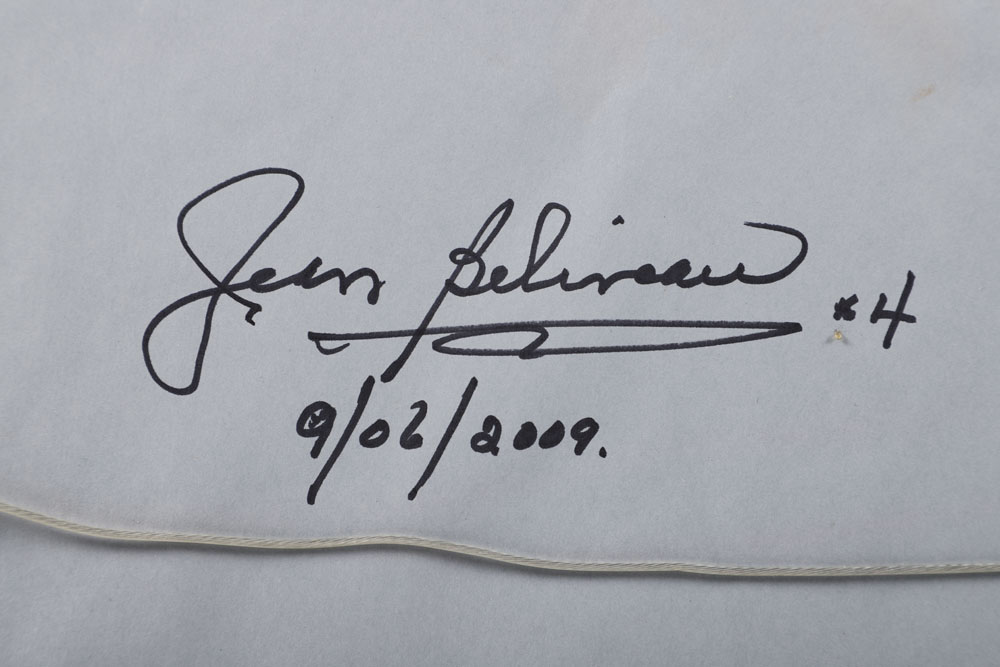 Jean Béliveau #4
9/06/2009.